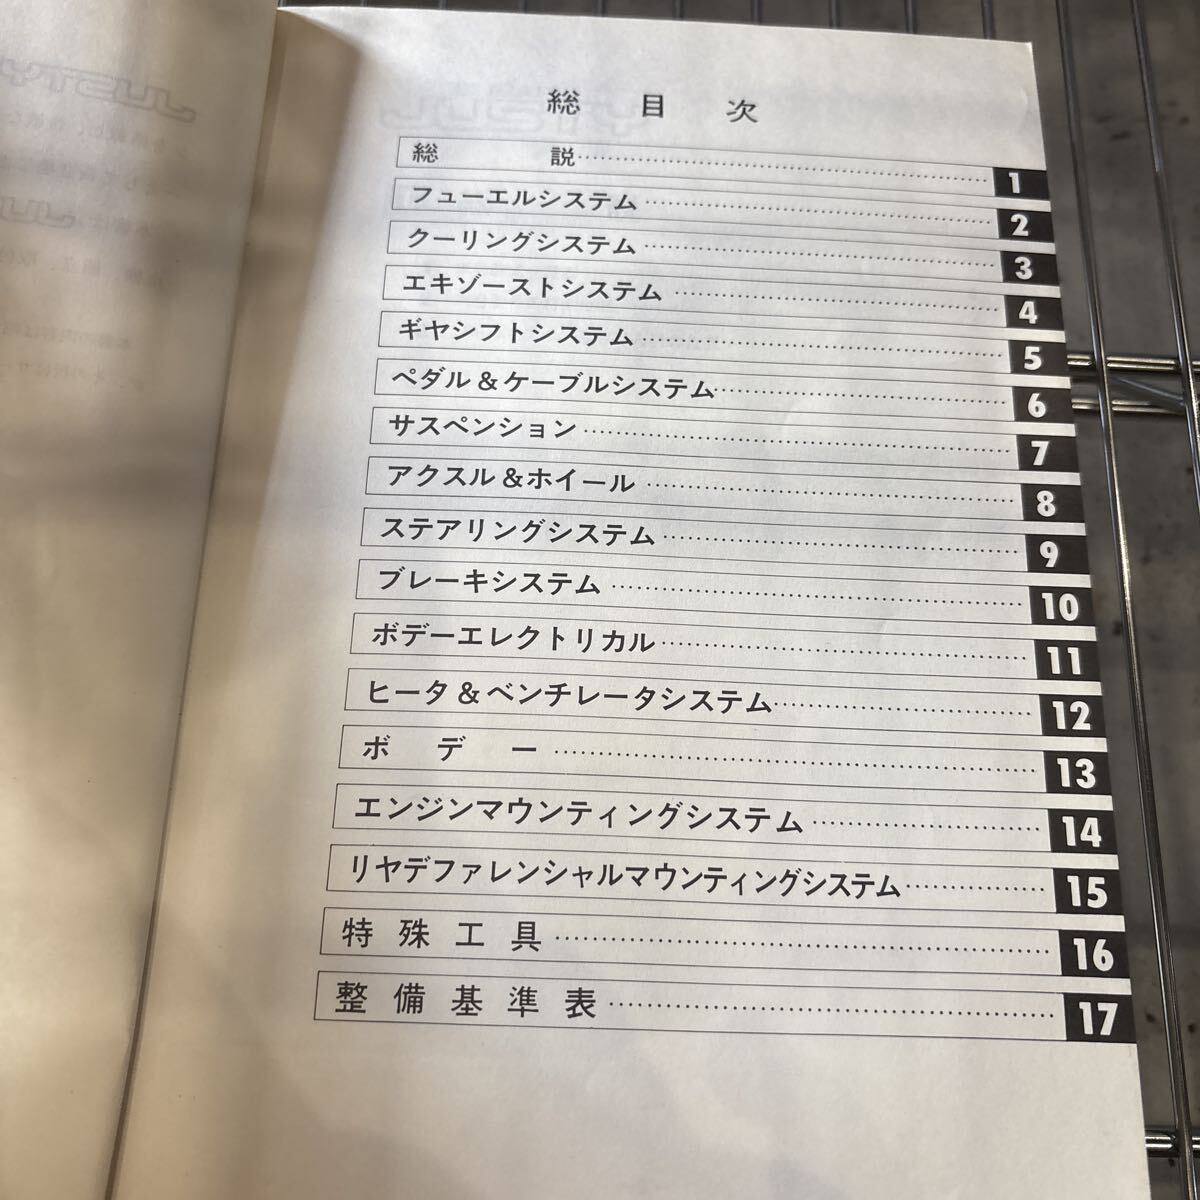 総目次
総説 1
フューエルシステム 2
クーリングシステム 3
エキゾーストシステム 4
ギヤシフトシステム 5
ペダル＆ケーブルシステム 6
サスペンション 7
アクスル＆ホイール 8
ステアリングシステム 9
ブレーキシステム 10
ボデーエレクトリカル 11
ヒータ＆ベンチレータシステム 12
ボデー 13
エンジンマウンティングシステム 14
リヤデファレンシャルマウンティングシステム 15
特殊工具 16
整備基準表 17